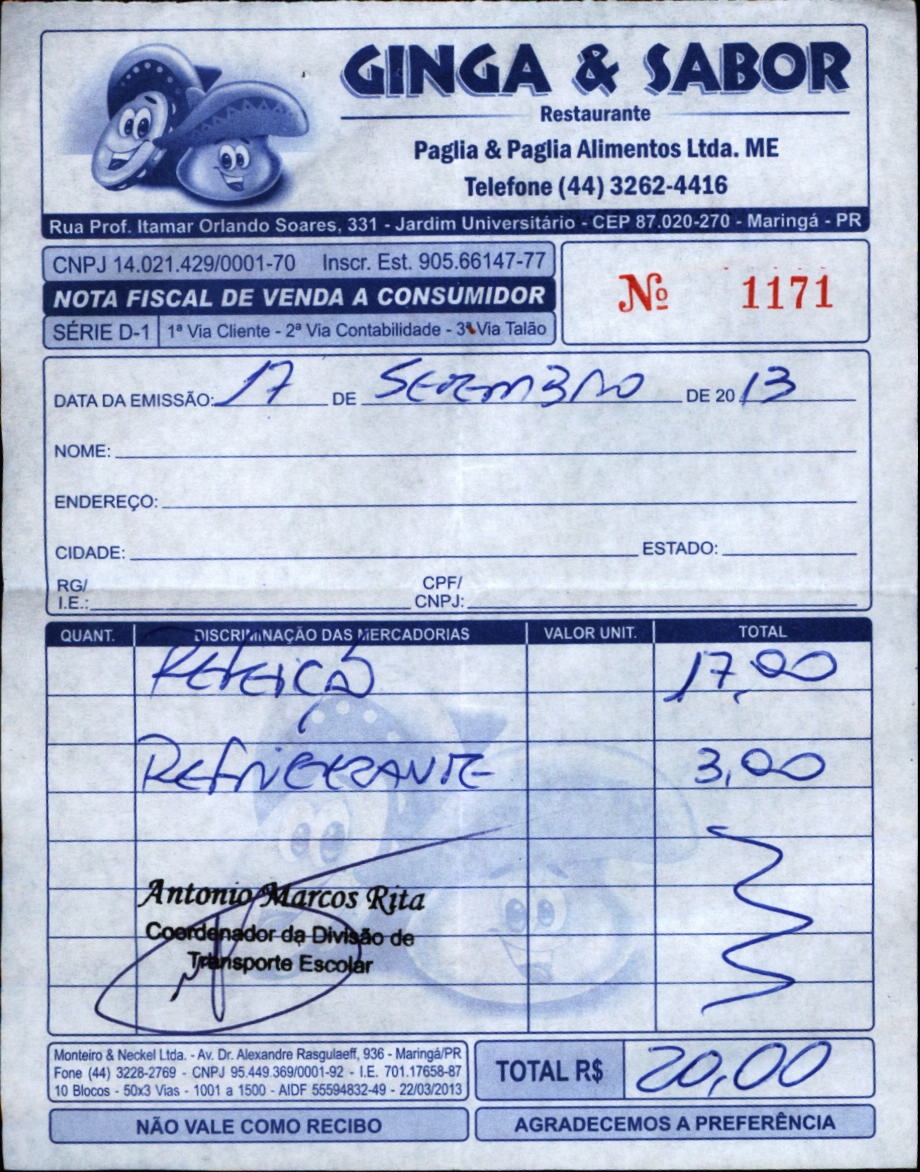 GINGA & SABOR
Restaurante
Paglia & Paglia Alimentos Ltda. ME
Telefone (44) 3262-4416
Rua Prof. Itamar Orlando Soares, 331 - Jardim Universitário - CEP 87.020-270 - Maringá - PR
CNPJ 14.021.429/0001-70 Inscr. Est. 905.66147-77
NOTA FISCAL DE VENDA A CONSUMIDOR
SÉRIE D-1 1ª Via Cliente - 2ª Via Contabilidade - 3ª Via Talão
Nº 1171
DATA DA EMISSÃO: 17 DE SETEMBRO DE 2013
NOME:
ENDEREÇO:
CIDADE: ESTADO:
RG/ CPF/
I.E.: CNPJ:
QUANT. DISCRIMINAÇÃO DAS MERCADORIAS VALOR UNIT. TOTAL
REFEIÇÃO 17,00
REFRIGERANTE 3,00
Antonio Marcos Rita
Coordenador da Divisão de
Transporte Escolar
Monteiro & Neckel Ltda. - Av. Dr. Alexandre Rasgulaeff, 936 - Maringá/PR
Fone (44) 3228-2769 - CNPJ 95.449.369/0001-92 - I.E. 701.17658-87
10 Blocos - 50x3 Vias - 1001 a 1500 - AIDF 55594832-49 - 22/03/2013
TOTAL R$ 20,00
NÃO VALE COMO RECIBO
AGRADECEMOS A PREFERÊNCIA